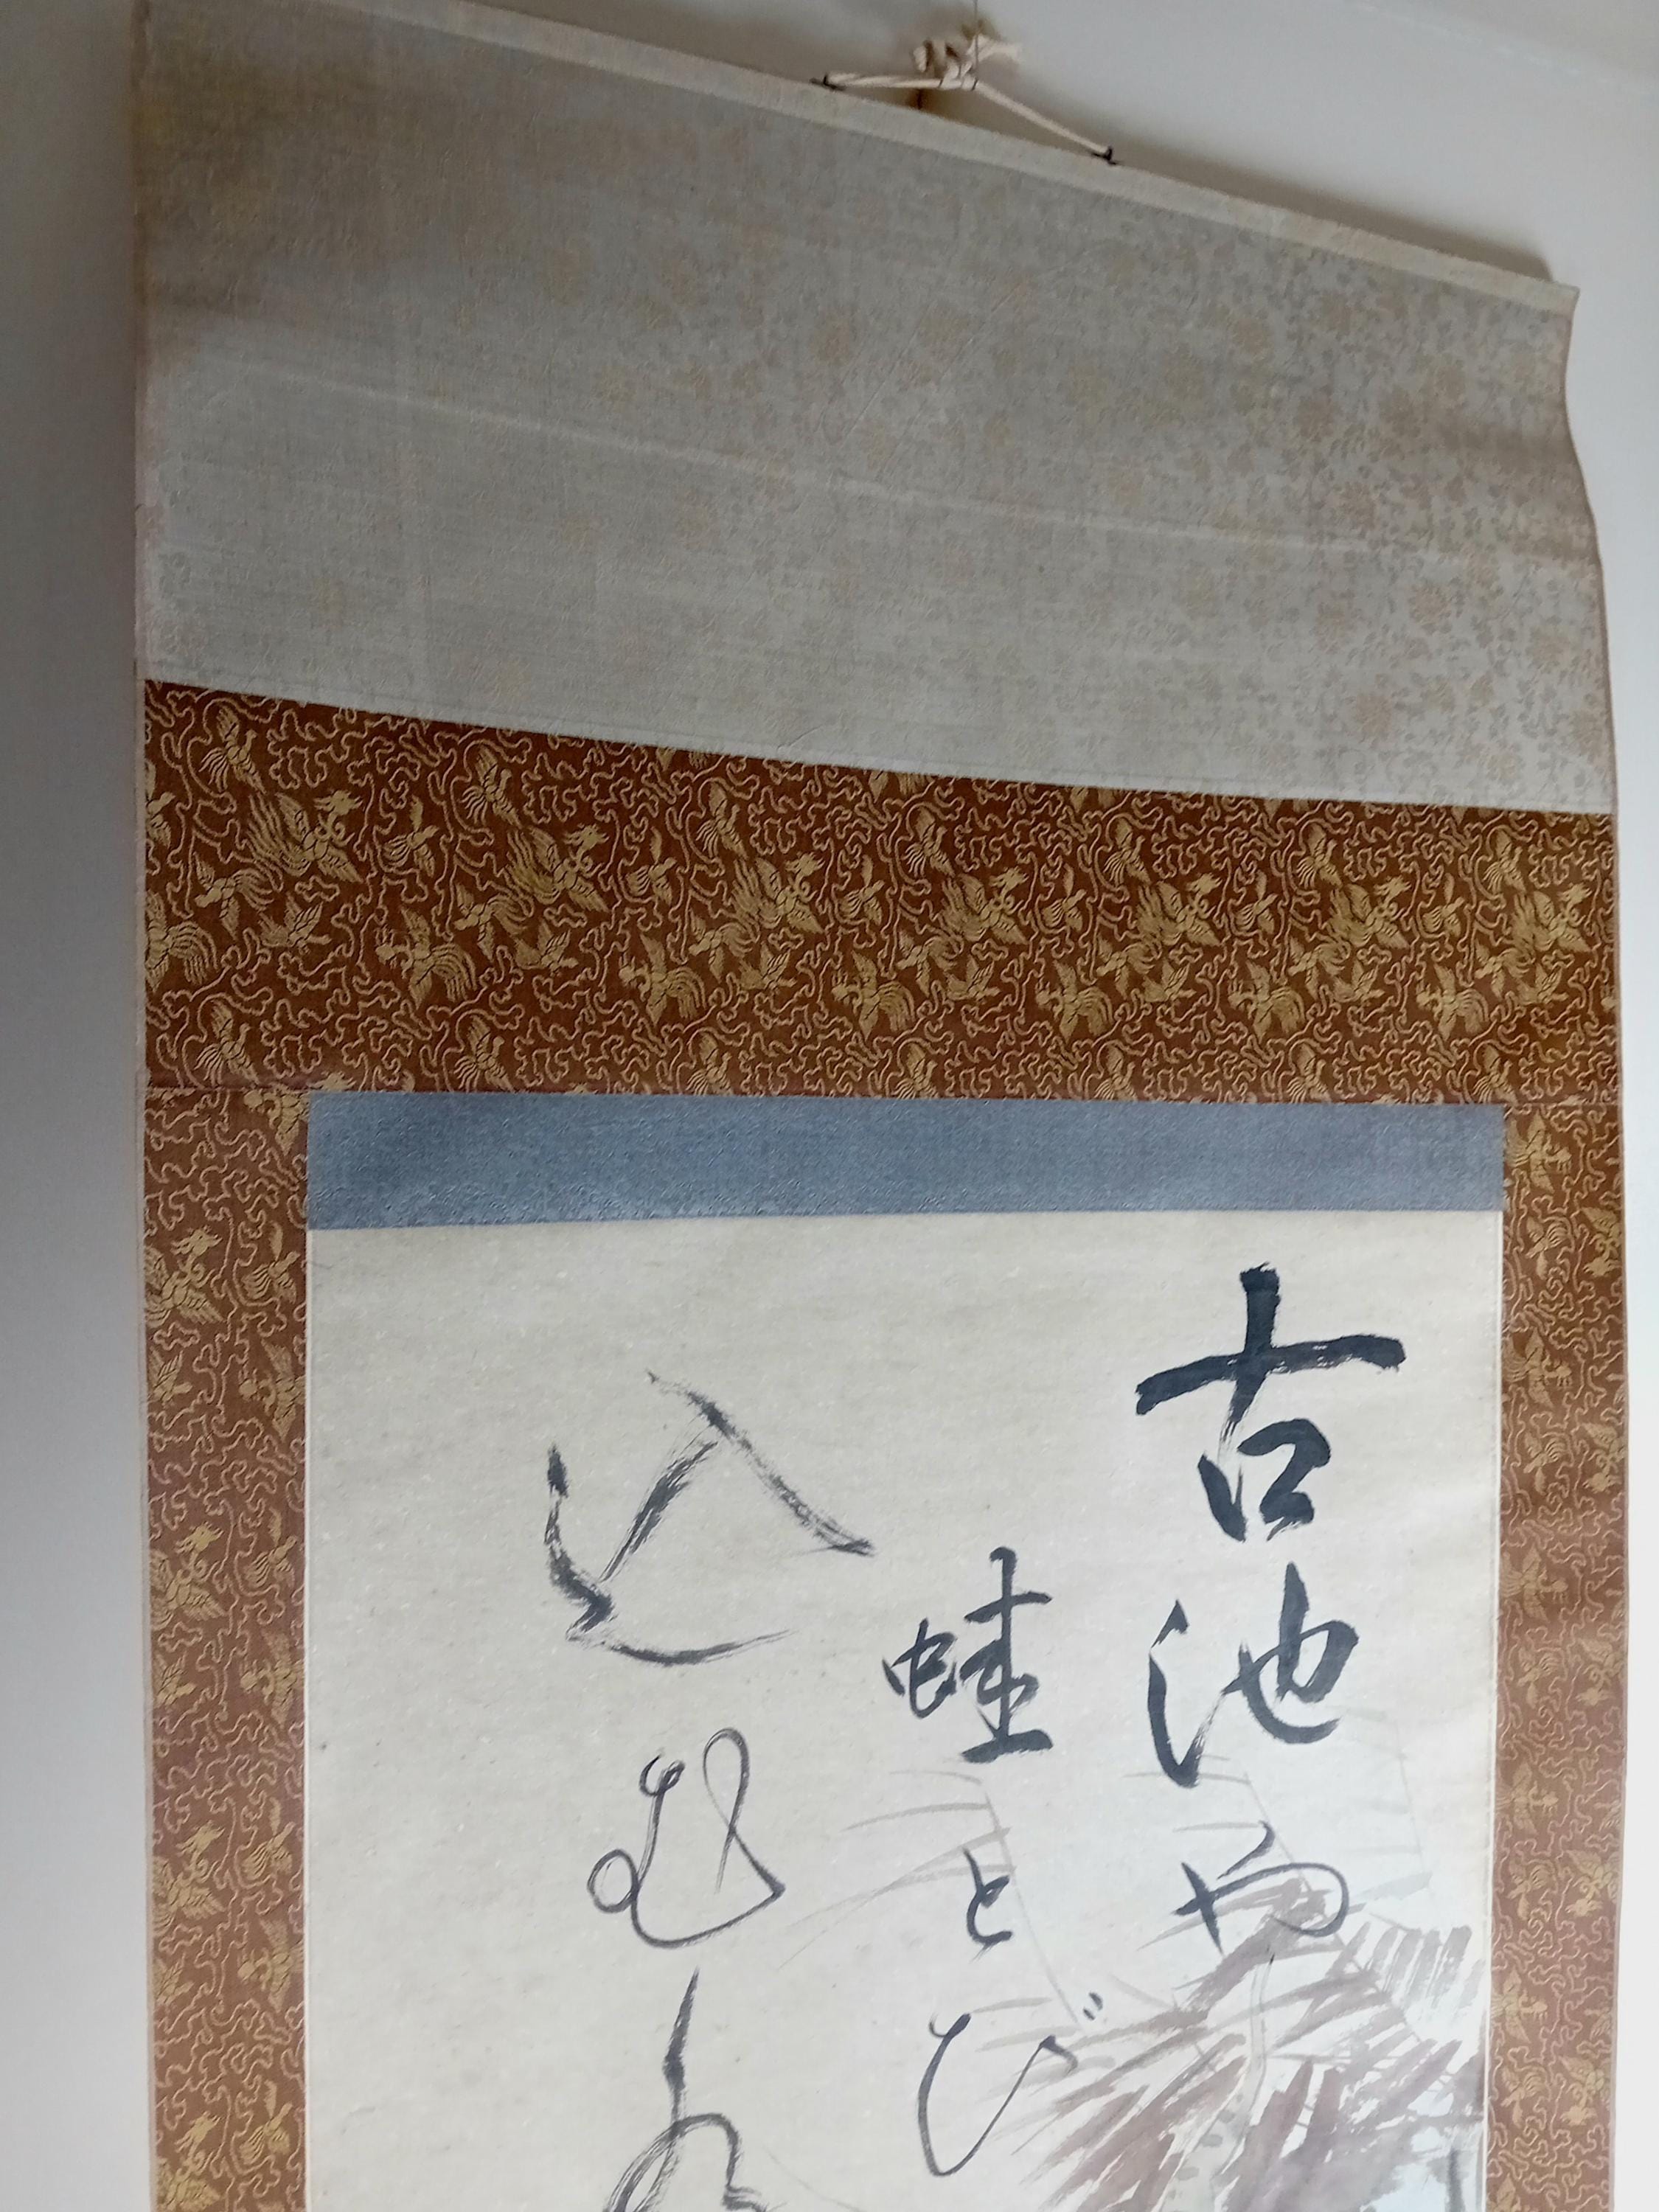 古池や
蛙とび
込む